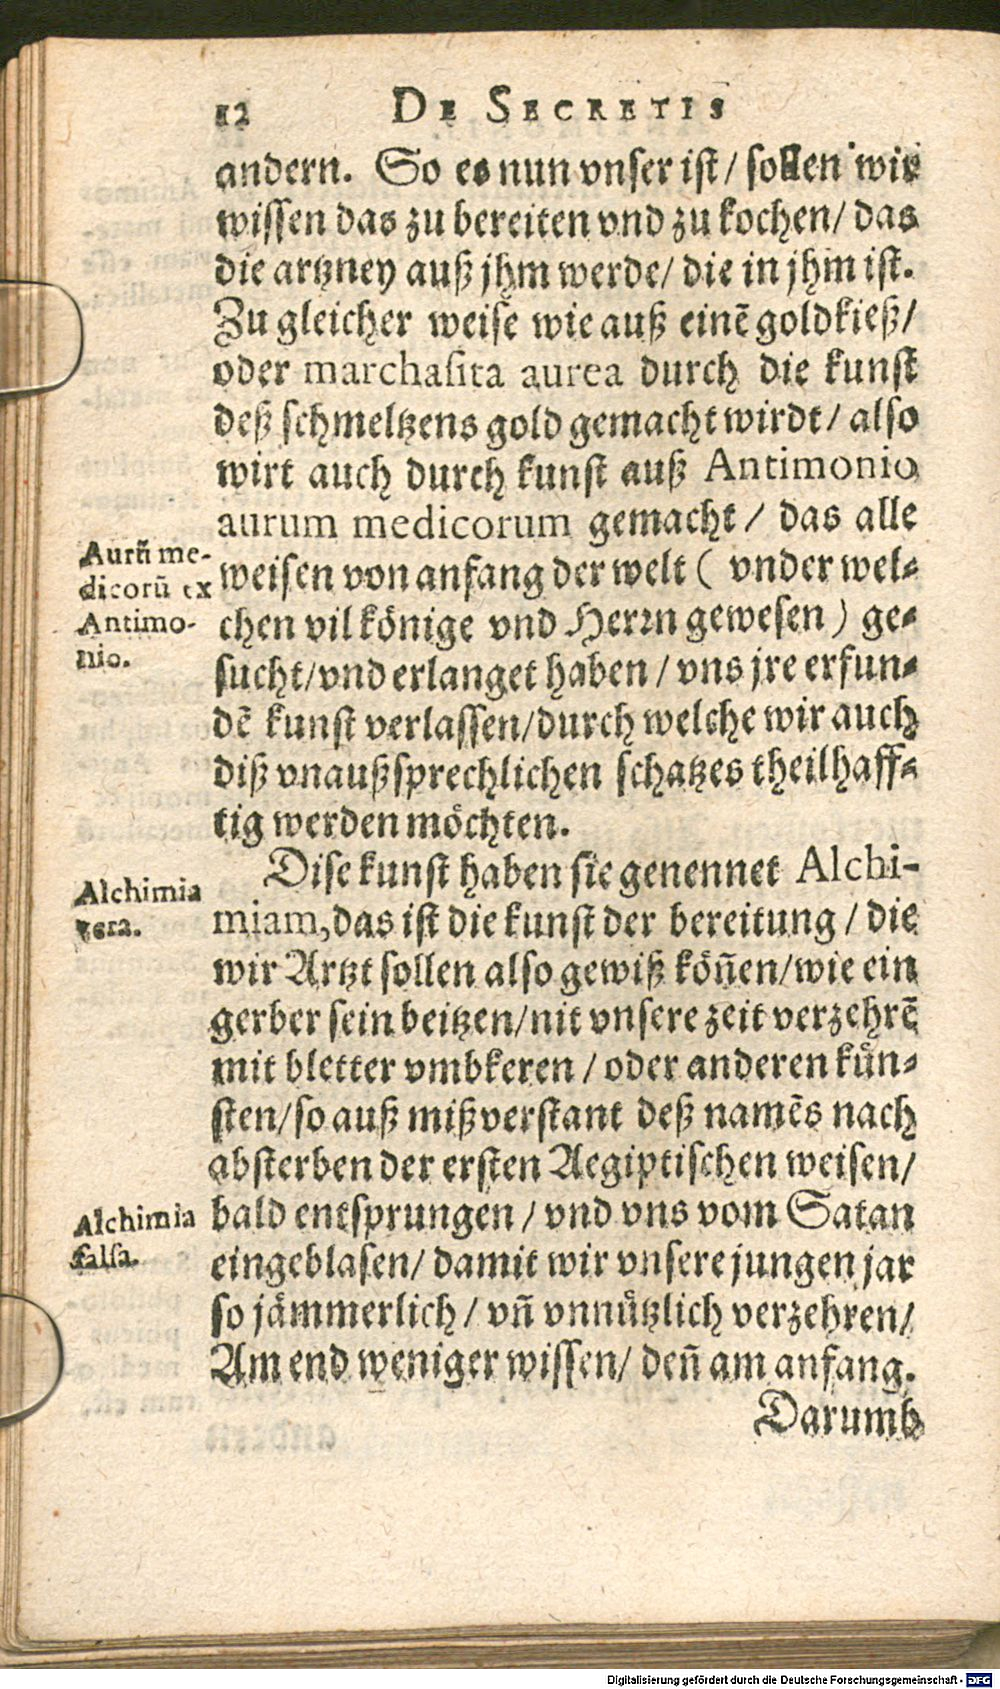 12 DE SECRETIS
andern. So es nun vnser ist / sollen wir
wissen das zu bereiten vnd zu kochen / das
die artzney auß jhm werde / die in jhm ist.
Zu gleicher weise wie auß einẽ goldkieß /
oder marchasita aurea durch die kunst
deß schmeltzens gold gemacht wirdt / also
wirt auch durch kunst auß Antimonio
aurum medicorum gemacht / das alle
weisen von anfang der welt ( vnder wel⸗
chen vil könige vnd Herrn gewesen ) ge⸗
sucht / vnd erlanget haben / vns jre erfun⸗
dẽ kunst verlassen / durch welche wir auch
diß vnaußsprechlichen schatzes theilhaff⸗
tig werden möchten.
Aurũ me-
dicorũ ex
Antimo-
nio.
Dise kunst haben sie genennet Alchi-
miam, das ist die kunst der bereitung / die
wir Artzt sollen also gewiß köñen / wie ein
gerber sein beitzen / nit vnsere zeit verzehrẽ
mit bletter vmbkeren / oder anderen kün⸗
sten / so auß mißverstant deß namẽs nach
absterben der ersten Aegiptischen weisen /
bald entsprungen / vnd vns vom Satan
eingeblasen / damit wir vnsere jungen jar
so jämmerlich / vñ vnnützlich verzehren /
Am end weniger wissen / deñ am anfang.
Alchimia
vera.
Alchimia
falsa.
Darumb
Digitalisierung gefördert durch die Deutsche Forschungsgemeinschaft - DFG